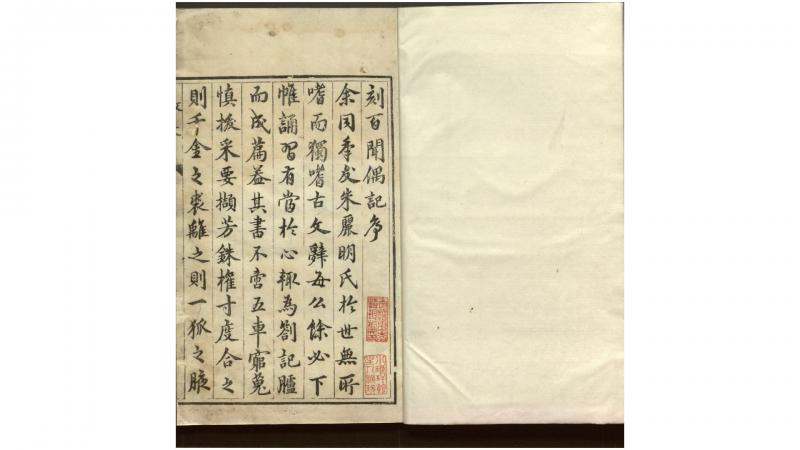 刻百聞偶記序
余同年友朱麗明氏於世無所
嗜而獨嗜古文辭每公餘必下
帷誦習有當於心輒為劄記臚
而成篇葢其書不啻五車窮蒐
慎採要擷芳銖權寸度合之
則千金之裘離之則一狐之腋